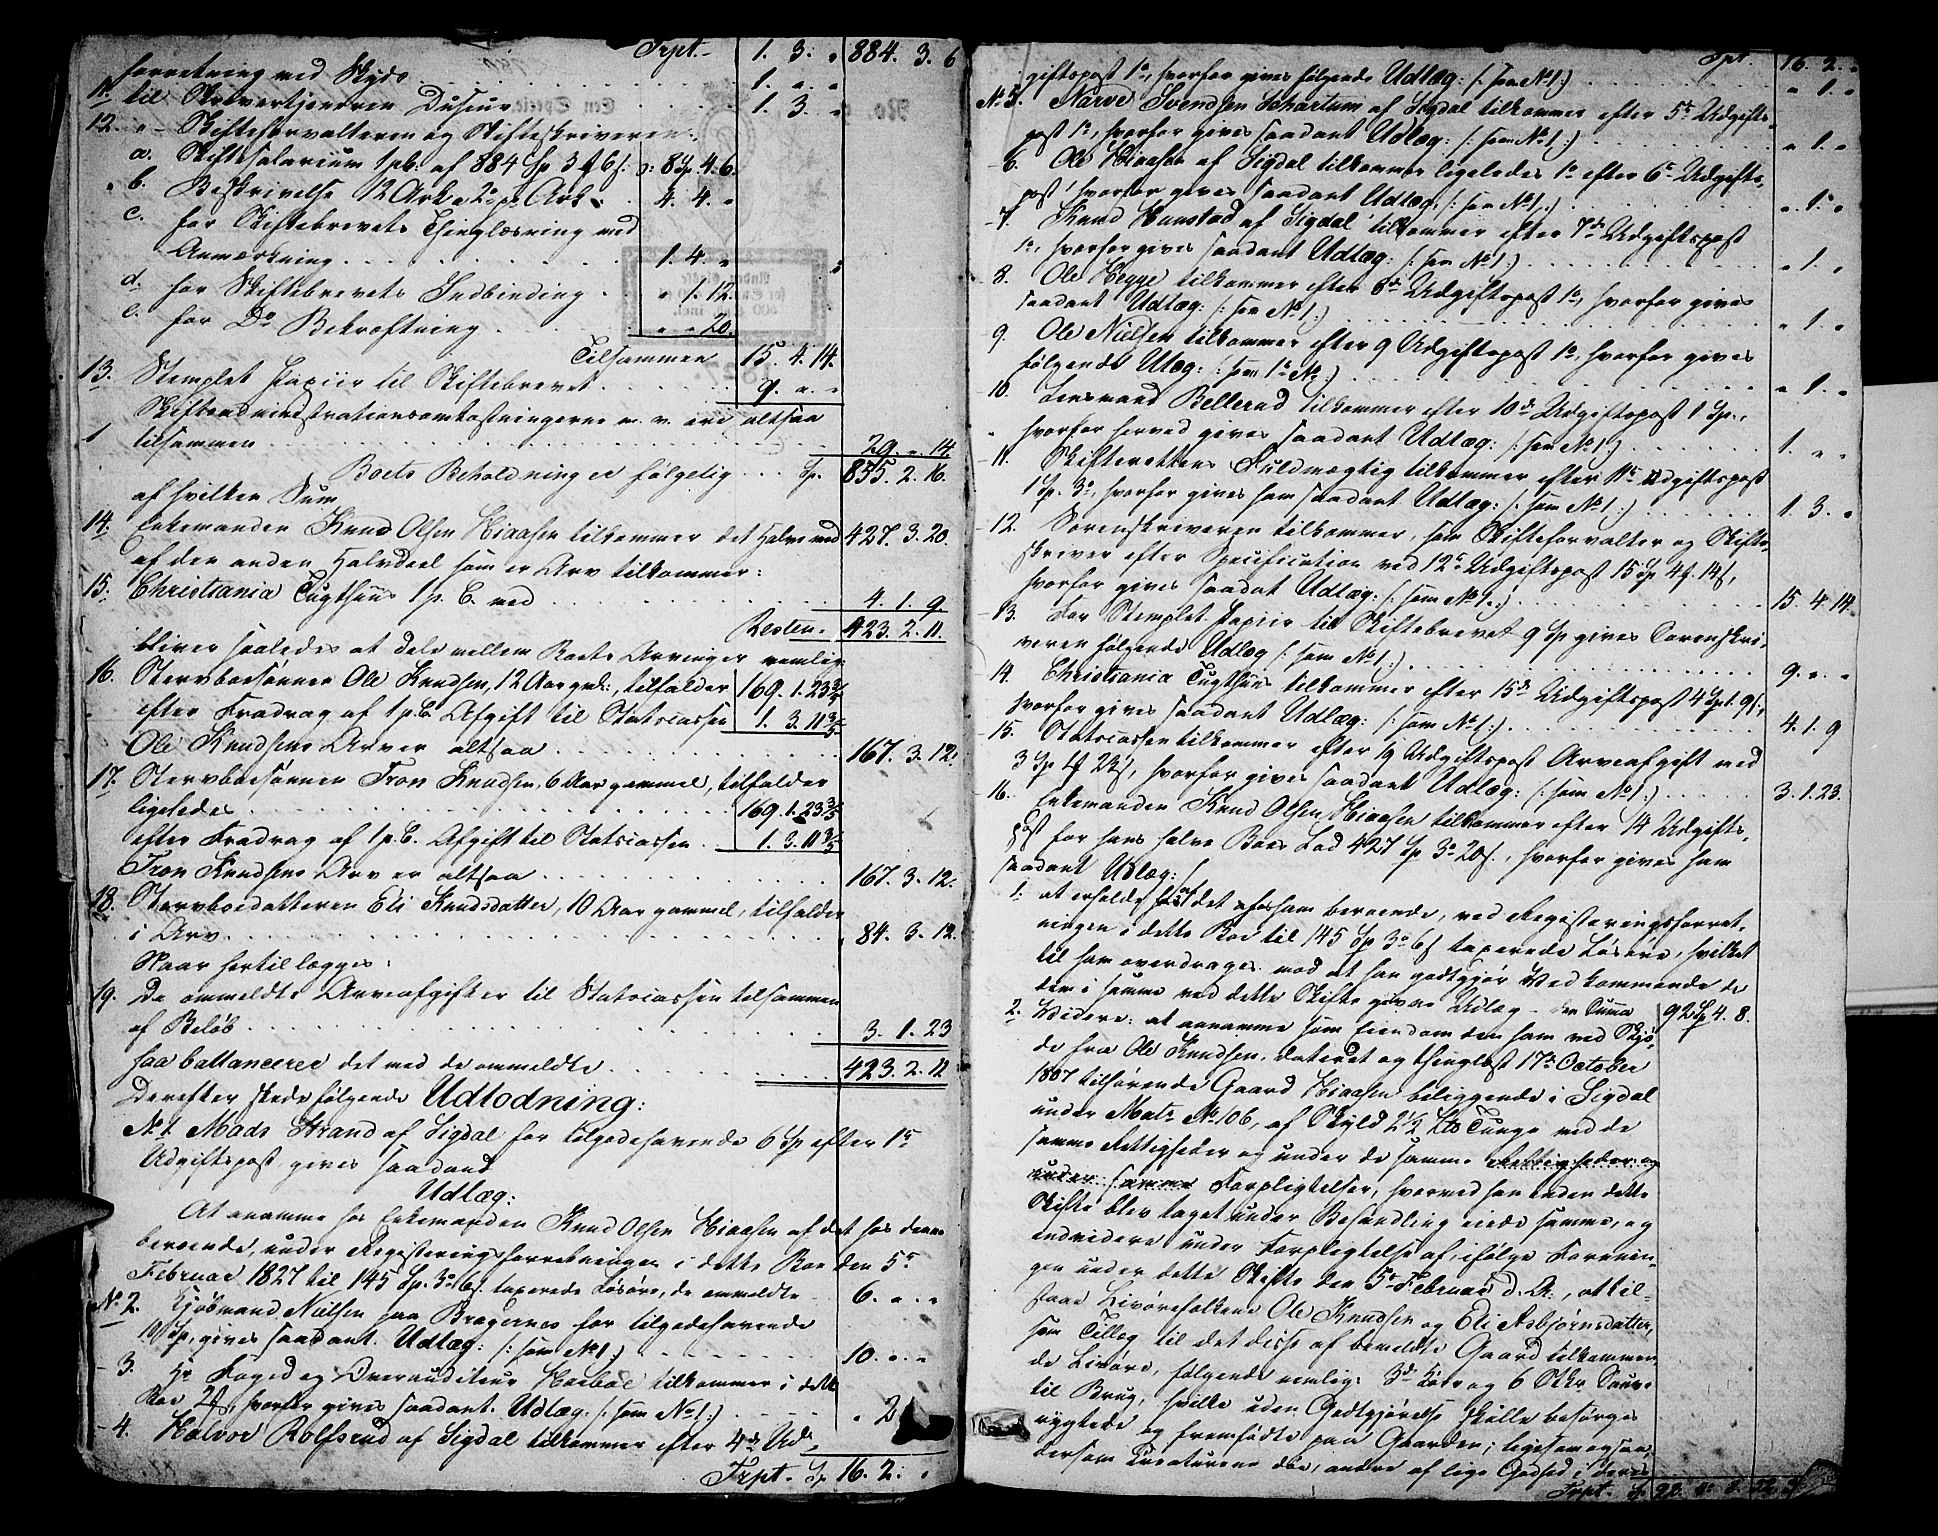 Trpt. 1. 3. „ 884. 3. 6
forretning ved Skyds . . . 1. „ „
11. til Skrivertjeneren Dusiin . . . 1. 3. „
12. „ – Skifteforvalteren og Skifteskriveren:
a. Skiftesalarium 1 pC: af 884 Sp 3 ₰ 6 s. ɔ: 8 Sp. 4. 6.
b. Beskrivelse 12 Ark a 2 o pr Ark . 4. 4. „
c. for Skiftebrevets Thinglæsning med
Anmærkning . . . 1. 4. „
d. for Skiftebrevets Indbinding . . . „ 1. 12.
e. for Do Bekræftning . . . „ „ 20.
Tilsammen 15. 4. 14.
13. Stemplet Papiir til Skiftebrevet . . . 9. „ „
Skifteadministrationsomkostningerne m. v. ere altsaa
tilsammen . . . 29. „ 14
Boets Beholdning er følgelig . . . Sp. 855. 2. 16.
af hvilken Sum
14. Enkemanden Knud Olsen Hiaasen tilkommer det Halve med 427. 3. 20.
af den anden Halvdeel som er Arv tilkommer:
15. Christiania Tugthuus 1 p. C. med . . . 4. 1. 9
Resten . 423. 2. 11.
bliver saaledes at dele mellem Boets Arvinger nemlig:
16. Stervboesønnen Ole Knudsen, 12 Aar gml:, tilfalder 169. 1. 23 3/5
efter Fradrag af 1 p.C. Afgift til Statscassen 1. 3. 11 3/5
Ole Knudsens Arv er altsaa . . . 167. 3. 12.
17. Stervboesønnen Tron Knudsen, 6 Aar gammel, tilfalder
ligeledes . . . 169. 1. 23 3/5
efter Fradrag af 1 p.C. Afgift til Statscassen . . 1. 3. 11 3/5
Tron Knudsens Arv er altsaa . . . 167. 3. 12.
18. Stervboedatteren Eli Knudsdatter, 10 Aar gammel, tilfalder
i Arv . . . 84. 3. 12.
Naar hertil lægges:
19. De anmeldte Arveafgifter til Statscassen tilsammen
af Beløb . . . 3. 1. 23
saa ballancerer det med de anmeldte . . . 423. 2. 11
Derefter skede følgende Udlodning:
No 1. Mads Strand af Sigdal for tilgodehavende 6 Sp efter 1e
Udgiftspost gives saadand
Udlæg:
At anamme hos Enkemanden Knud Olsen Hiaasen af det hos denne
beroende, under Registeringsforretningen i dette Boe den 5e
Februar 1827 til 145 Sp. 3 o 6 s. taxerede Løsøre, de anmeldte 6. „ „
No 2. Kjøbmand Nielsen paa Bragernes for tilgodehavende
10 Sp, gives saadant Udlæg: /: som No 1 :/ . . . 10. „ „
3. Hr Foged og Overauditeur Hoeboe tilkommer i dette
Boe 2 ₰, hvorfor gives saadant Udlæg: /: som No 1 :/ . . . „ 2
4. Halvor Rolfsrud af Sigdal tilkommer efter 4de Ud-
Trpt. Sp 16. 2. „
Trpt. 16. 2. „
giftspost 1 o, hvorfor gives følgende Udlæg: /: som No 1 :/ . . . „ 1. „
No 5. Narve Svendsen Schartum af Sigdal tilkommer efter 5te Udgifts-
post 1 o, hvorfor gives saadant Udlæg: /: som No 1 :/ . . . „ 1. „
6. Ole Hiaasen af Sigdal tilkommer ligeledes 1 o efter 6te Udgifts-
post, hvorfor gives saadant Udlæg: /: som No 1 :/ . . . „ 1. „
7. Knud Haustad af Sigdal tilkommer efter 7de Udgiftspost
1 o, hvorfor gives saadant Udlæg: /: som No 1 :/ . . . „ 1. „
8. Ole Hegge tilkommer efter 8de Udgiftspost 1 o, hvorfor gives
saadant Udlæg: /: som No 1 :/ . . . „ 1. „
9. Ole Nielsen tilkommer efter 9 Udgiftspost 1 o, hvorfor gives
følgende Utlæg: /: som 1e No :/ . . . „ 1. „
10. Lensmand Bellerud tilkommer efter 10de Udgiftspost 1 Sp.,
hvorfor herved gives saadant Udlæg: /: som No 1 :/ . . . 1. „ „
11. Skifterettens Fuldmægtig tilkommer efter 11te Udgiftspost
1 Sp. 3 o, hvorfor gives ham saadant Udlæg: /: som No 1 :/ . . . 1. 3. „
12. Sorenskriveren tilkommer, som Skifteforvalter og Skifte-
skriver efter Specification ved 12te Udgiftspost 15 Sp 4 ₰ 14 s,
hvorfor gives saadant Udlæg: /: som No 1 :/ . . . 15. 4. 14.
13. For Stemplet Papiir til Skiftebrevet 9 Sp gives Sorenskri-
veren følgende Udlæg /: som No 1 :/ . . . 9. „ „
14. Christiania Tugthuus tilkommer efter 15de Udgiftspost 4 Sp 1. 9 s,
hvorfor gives saadant Udlæg: /: som No 1 :/ . . . 4. 1. 9
15. Statscassen tilkommer efter 19 Udgiftspost Arveafgift med
3 Sp 1 ₰ 23 s, hvorfor gives saadant Udlæg: /: som No 1 :/ . . . 3. 1. 23.
16. Enkemanden Knud Olsen Hiaasen tilkommer efter 14 Udgifts-
post for hans halve Boes Lod 427 Sp 3 o 20 s., hvorfor gives ham
saadant Udlæg:
1. at erholde af det hos ham beroende, ved Registeringsforret-
ningen i dette Boe til 145 Sp 3 o 6 s taxerede Løsøre, hvilket
til ham overdrages mod at han godtgjør Vedkommende de
dem i samme ved dette Skifte givne Udlæg – den Summa 92 Sp 4. 8.
2. Videre: at anamme som Eiendom den ham ved Skjø-
de fra Ole Knudsen, dateret og thinglæst 17de October
1807 tilhørende Gaard Hiaasen beliggende i Sigdal
under Matr No 106, af Skyld 2 1/2 Lbs Tunge med de
samme Rettigheder og under de samme Rettigheder og
under samme Forpligtelser, hvormed han inden dette
Skifte blev taget under Behandling eiede samme, og
endvidere under Forpligtelse af, ifølge Forenin-
gen under dette Skifte den 5e Februar d. A., at til-
staae Livørefolkene Ole Knudsen og Eli Asbjørnsdatter,
som Tillæg til det disse af bemeldte Gaard tilkommen-
de Livøre, følgende nemlig: 3de Køer og 6 Stkr Souer
til Brug, hvilke uden Godtgjørelse skulle besørges
røgtede og fremfødte paa Gaarden; ligesom ogsaa,
dersom Creaturene døe, andre af lige Godhed i deres
Trpt. Sp 92. 4. 8.